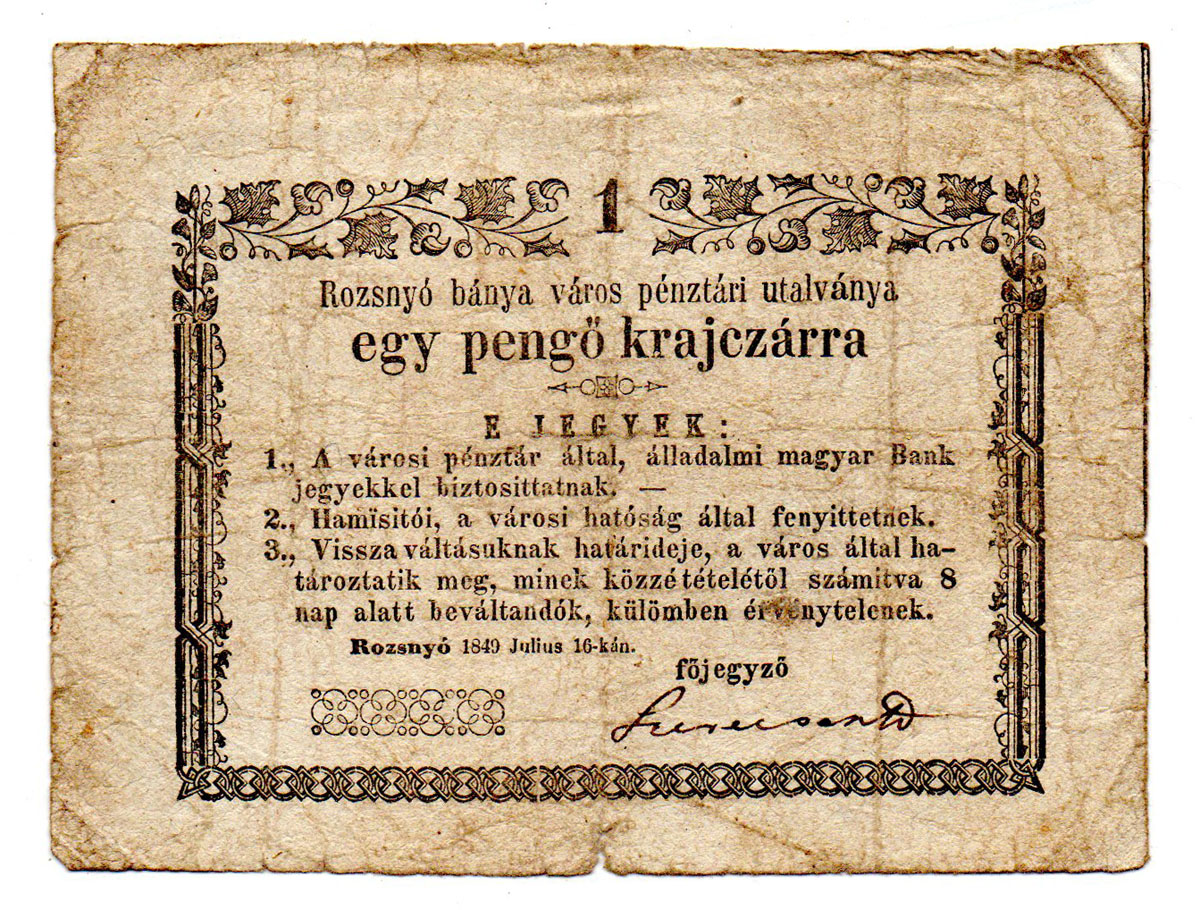 1
Rozsnyó bánya város pénztári utalványa
egy pengő krajczárra
E JEGYEK:
1., A városi pénztár által, álladalmi magyar Bank
jegyekkel biztosittatnak. —
2., Hamïsitói, a városi hatóság által fenyittetnek.
3., Vissza váltásuknak határideje, a város által ha-
tároztatik meg, minek közzé tételétől számitva 8
nap alatt beváltandók, külömben érvénytelenek.
Rozsnyó 1849 Julius 16-kán.
főjegyző